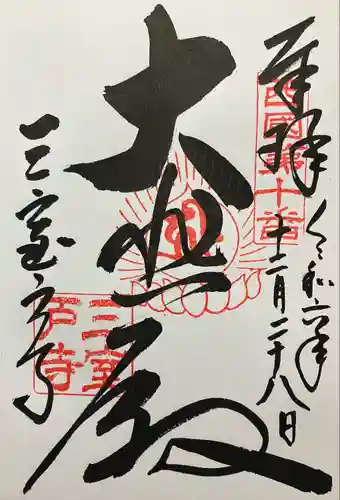 奉拝
西国第十番
令和六年
十二月二十八日
大悲殿
三室戸寺
三室
戸寺